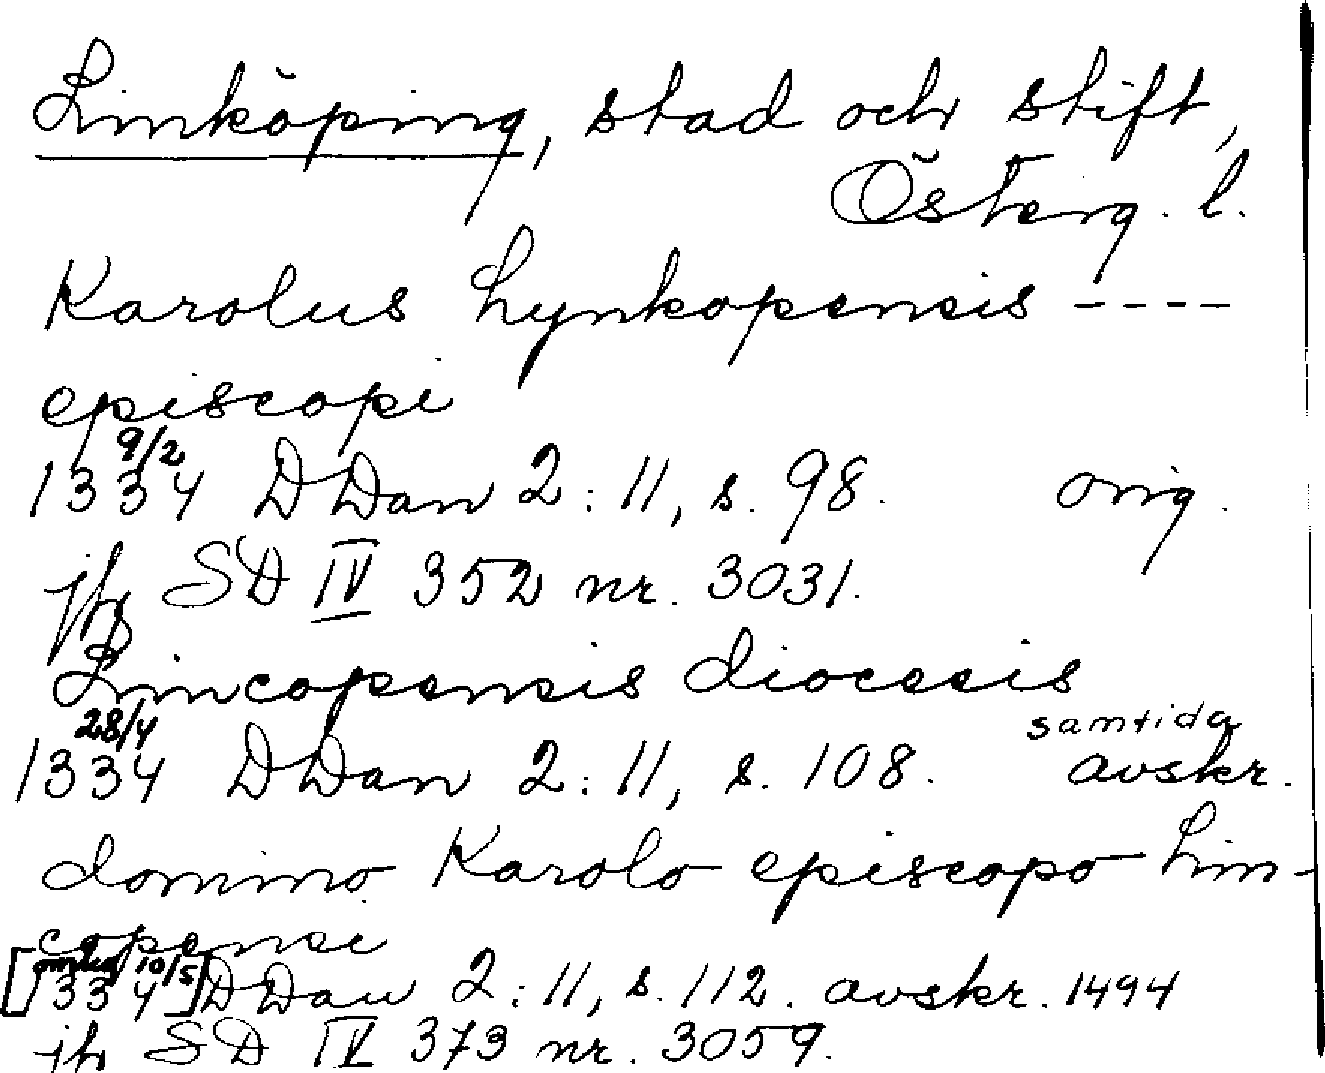 Linköping, stad och stift,
Österg. l.
Karolus Lynkopensis ----
episcopi
9/2
1334 DDan 2:11, s. 98. orig.
jfr SD IV 352 nr. 3031.
Lincopensis diocesis
28/4 samtida
1334 DDan 2:11, s. 108. avskr.
domino Karolo episcopo Lin-
copensi
[omkr 10/5
1334] DDan 2:11, s. 112. avskr. 1494
jfr SD IV 373 nr. 3059.